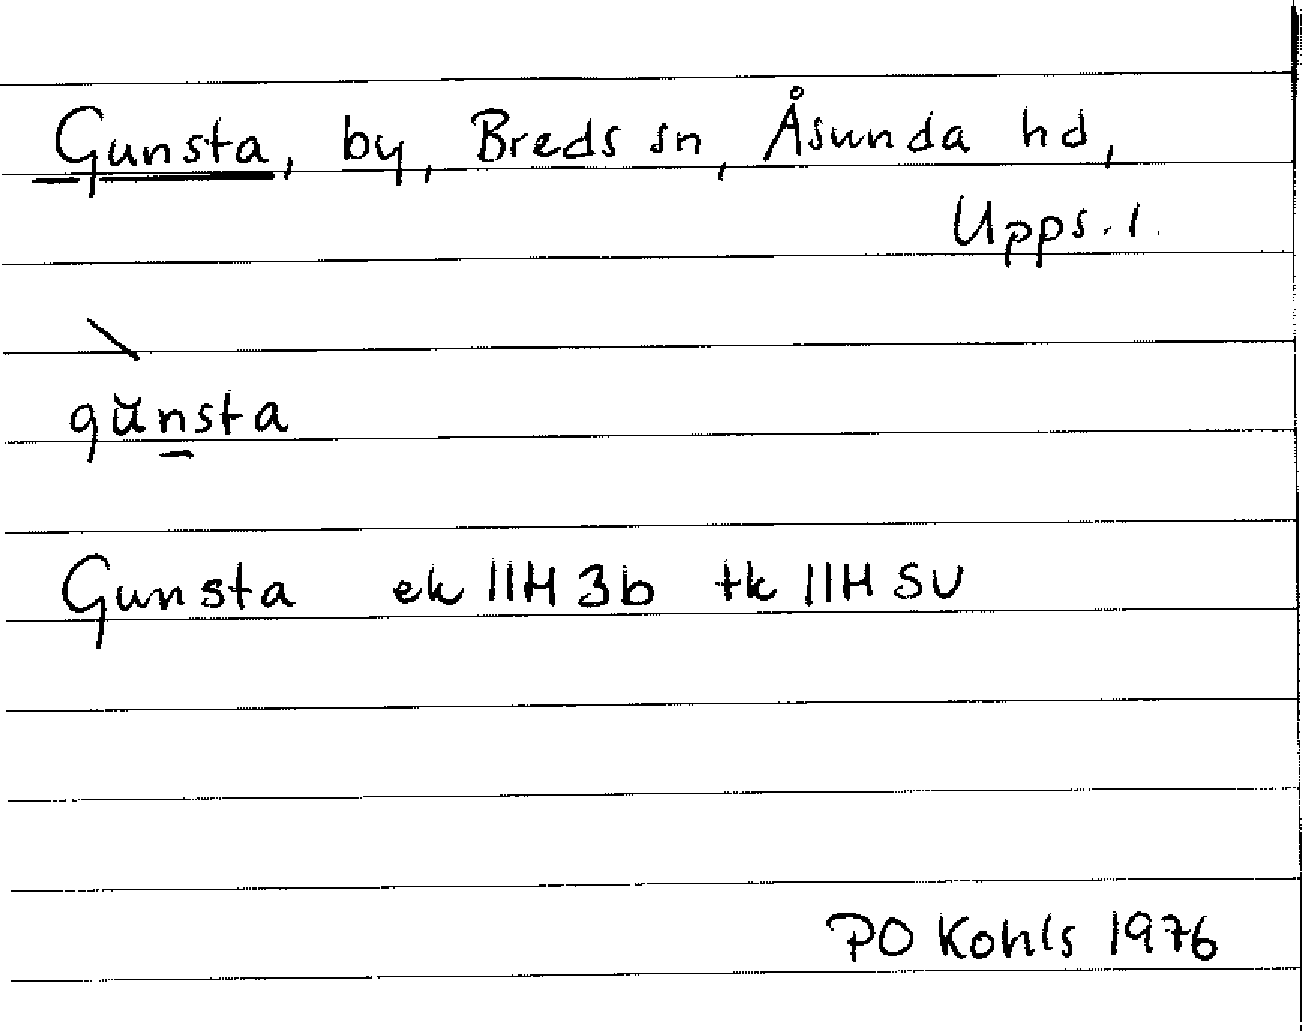 Gunsta, by, Breds sn, Åsunda hd,
Upps. l.
gŭnsta
Gunsta ek 11H 3b tk 11H SV
PO Kohls 1976